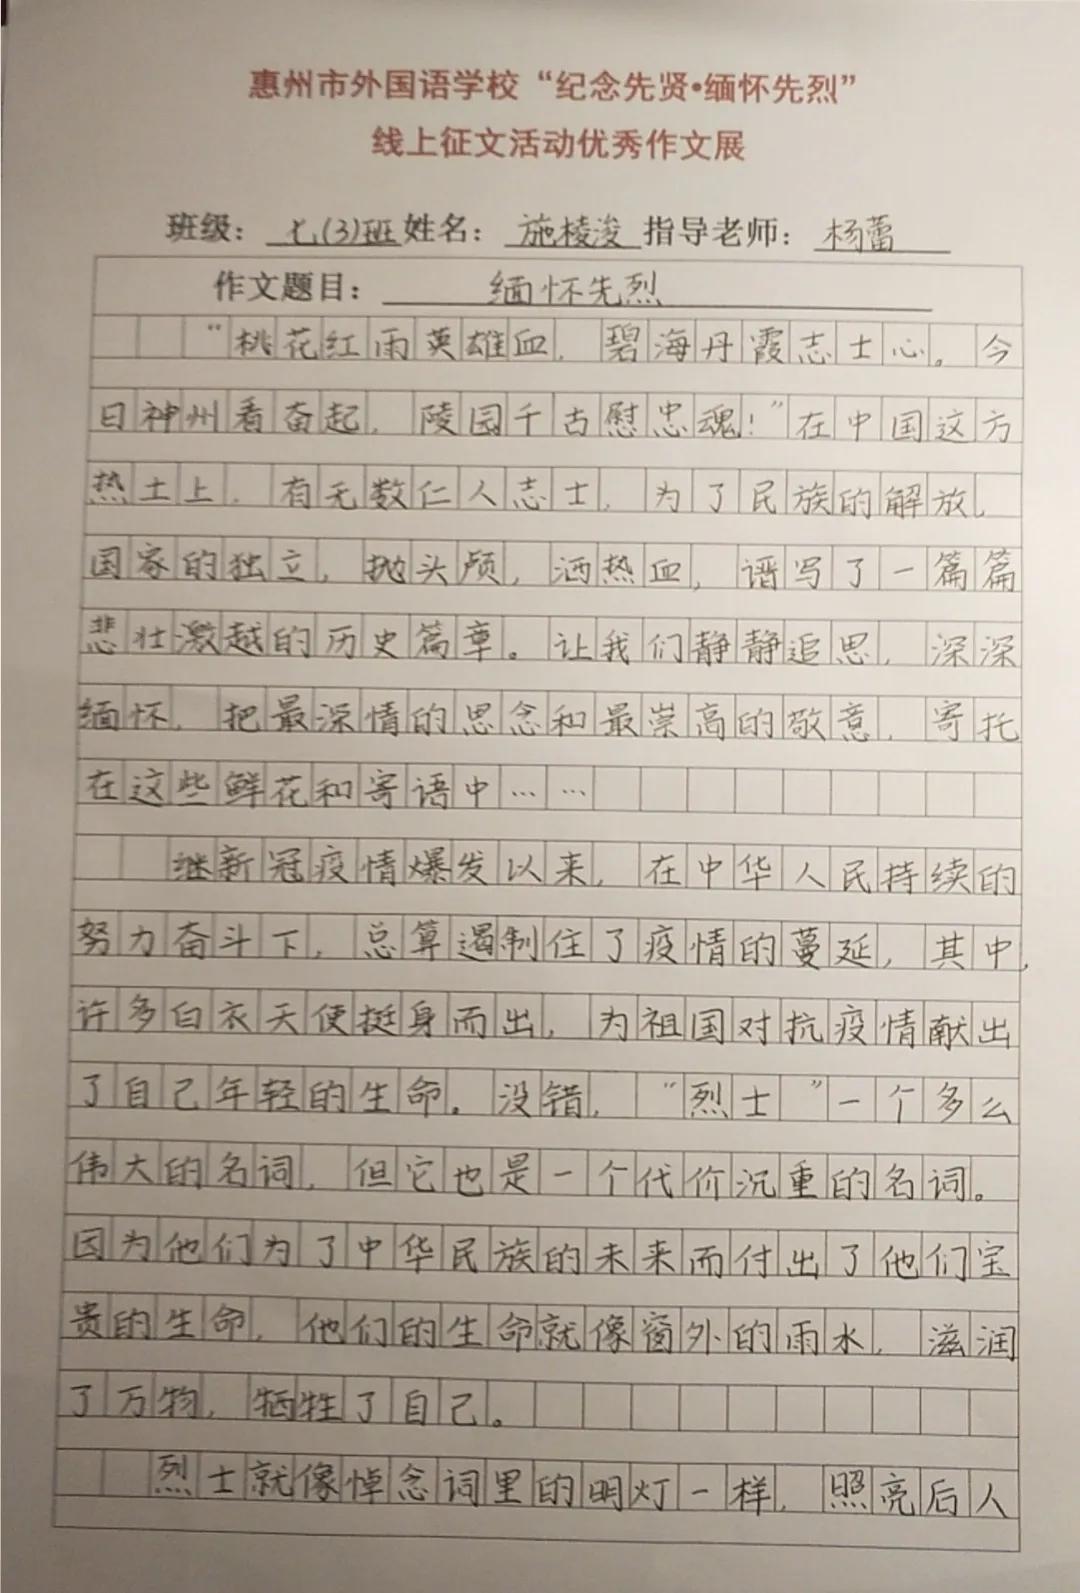 惠州市外国语学校“纪念先贤•缅怀先烈”
线上征文活动优秀作文展
班级：七(3)班 姓名：施棱浚 指导老师：杨蕾
作文题目：缅怀先烈
“桃花红雨英雄血，碧海丹霞志士心。今
日神州看奋起，陵园千古慰忠魂！”在中国这方
热土上，有无数仁人志士，为了民族的解放，
国家的独立，抛头颅，洒热血，谱写了一篇篇
悲壮激越的历史篇章。让我们静静追思，深深
缅怀，把最深情的思念和最崇高的敬意，寄托
在这些鲜花和寄语中……
继新冠疫情爆发以来，在中华人民持续的
努力奋斗下，总算遏制住了疫情的蔓延，其中，
许多白衣天使挺身而出，为祖国对抗疫情献出
了自己年轻的生命。没错，“烈士”一个多么
伟大的名词，但它也是一个代价沉重的名词。
因为他们为了中华民族的未来而付出了他们宝
贵的生命，他们的生命就像窗外的雨水，滋润
了万物，牺牲了自己。
烈士就像悼念词里的明灯一样，照亮后人